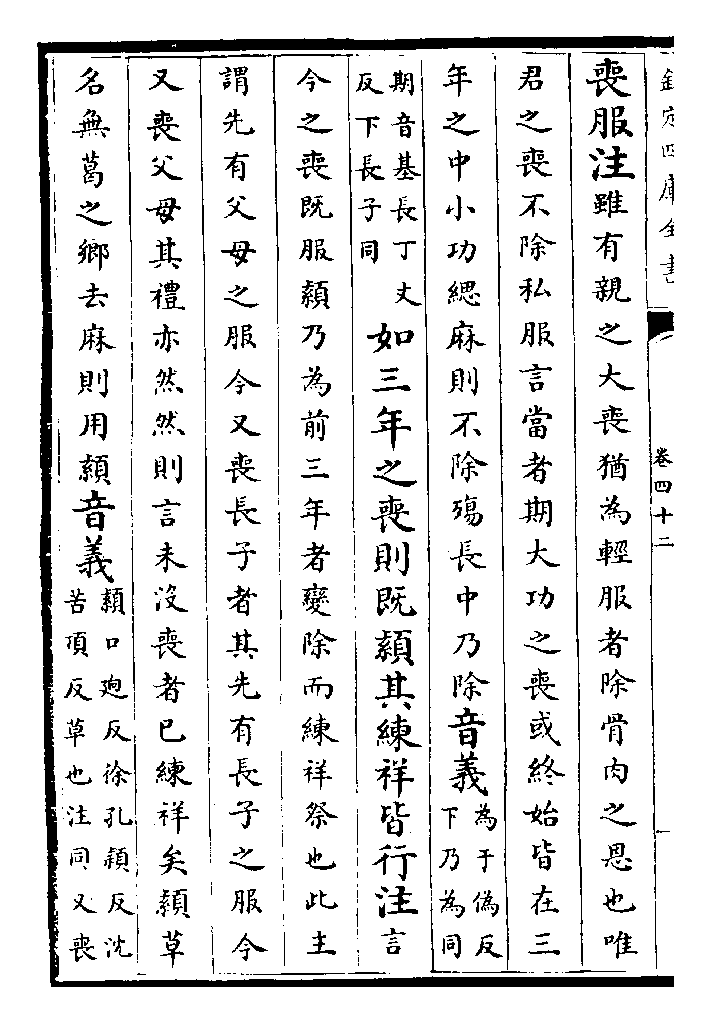 欽定四庫全書
卷四十二
喪服注雖有親之大喪猶為輕服者除骨肉之恩也唯
君之喪不除私服言當者期大功之喪或終始皆在三
年之中小功緦麻則不除殤長中乃除音義為于偽反
下乃為同
期音基長丁丈
反下長子同
如三年之喪則既顈其練祥皆行注言
今之喪既服顈乃為前三年者變除而練祥祭也此主
謂先有父母之服今又喪長子者其先有長子之服今
又喪父母其禮亦然然則言未沒喪者已練祥矣顈草
名無葛之鄉去麻則用顈音義顈口迥反徐孔潁反沈
苦頂反草也注同又喪